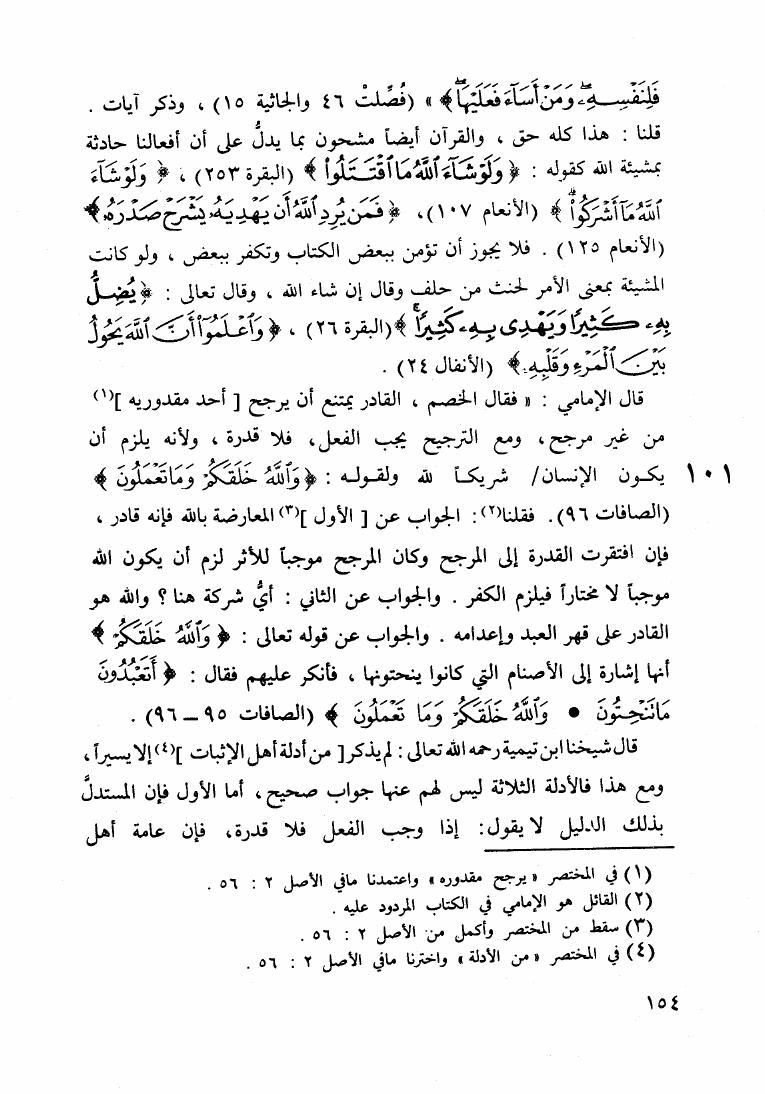 فَلِنَفْسِهِۦ وَمَنْ أَسَآءَ فَعَلَيْهَا ﴾ » (فُصِّلتْ ٤٦ والجاثية ١٥) ، وذكر آيات .
قلنا : هذا كله حق ، والقرآن أيضاً مشحون بما يدلُّ على أن أفعالنا حادثة
بمشيئة الله كقوله : ﴿ وَلَوْ شَآءَ ٱللَّهُ مَا ٱقْتَتَلُوا۟ ﴾ (البقرة ٢٥٣) ، ﴿ وَلَوْ شَآءَ
ٱللَّهُ مَآ أَشْرَكُوا۟ ﴾ (الأنعام ١٠٧)، ﴿ فَمَن يُرِدِ ٱللَّهُ أَن يَهْدِيَهُۥ يَشْرَحْ صَدْرَهُۥ ﴾
(الأنعام ١٢٥) . فلا يجوز أن تؤمن ببعض الكتاب وتكفر ببعض ، ولو كانت
المشيئة بمعنى الأمر لحنث من حلف وقال إن شاء الله ، وقال تعالى : ﴿ يُضِلُّ
بِهِۦ كَثِيرًا وَيَهْدِى بِهِۦ كَثِيرًا ﴾ (البقرة ٢٦) ، ﴿ وَٱعْلَمُوٓا۟ أَنَّ ٱللَّهَ يَحُولُ
بَيْنَ ٱلْمَرْءِ وَقَلْبِهِۦ ﴾ (الأنفال ٢٤) .
قال الإمامي : « فقال الخصم ، القادر يمتنع أن يرجح [ أحد مقدوريه ](١)
من غير مرجح، ومع الترجيح يجب الفعل، فلا قدرة ، ولأنه يلزم أن
١٠١ يكون الإنسان/ شريكاً لله ولقوله : ﴿ وَٱللَّهُ خَلَقَكُمْ وَمَا تَعْمَلُونَ ﴾
(الصافات ٩٦). فقلنا(٢): الجواب عن [ الأول ](٣) المعارضة بالله فإنه قادر ،
فإن افتقرت القدرة إلى المرجح وكان المرجح موجباً للأثر لزم أن يكون الله
موجباً لا مختاراً فيلزم الكفر . والجواب عن الثاني : أيُّ شركة هنا ؟ والله هو
القادر على قهر العبد وإعدامه . والجواب عن قوله تعالى : ﴿ وَٱللَّهُ خَلَقَكُمْ ﴾
أنها إشارة إلى الأصنام التي كانوا ينحتونها ، فأنكر عليهم فقال : ﴿ أَتَعْبُدُونَ
مَا تَنْحِتُونَ ● وَٱللَّهُ خَلَقَكُمْ وَمَا تَعْمَلُونَ ﴾ (الصافات ٩٥ – ٩٦) .
قال شيخنا ابن تيمية رحمه الله تعالى : لم يذكر [ من أدلة أهل الإثبات ](٤) إلا يسيراً ،
ومع هذا فالأدلة الثلاثة ليس لهم عنها جواب صحيح، أما الأول فإن المستدلَّ
بذلك الدليل لا يقول: إذا وجب الفعل فلا قدرة، فإن عامة أهل
(١) في المختصر « يرجح مقدوره » واعتمدنا مافي الأصل ٢ : ٥٦ .
(٢) القائل هو الإمامي في الكتاب المردود عليه .
(٣) سقط من المختصر وأكمل من الأصل ٢ : ٥٦ .
(٤) في المختصر « من الأدلة » واخترنا مافي الأصل ٢ : ٥٦ .
١٥٤